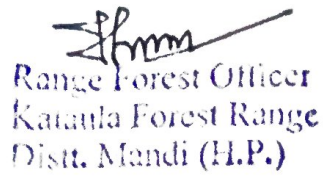 Range Forest Officer
Kataula Forest Range
Distt. Mandi (H.P.)